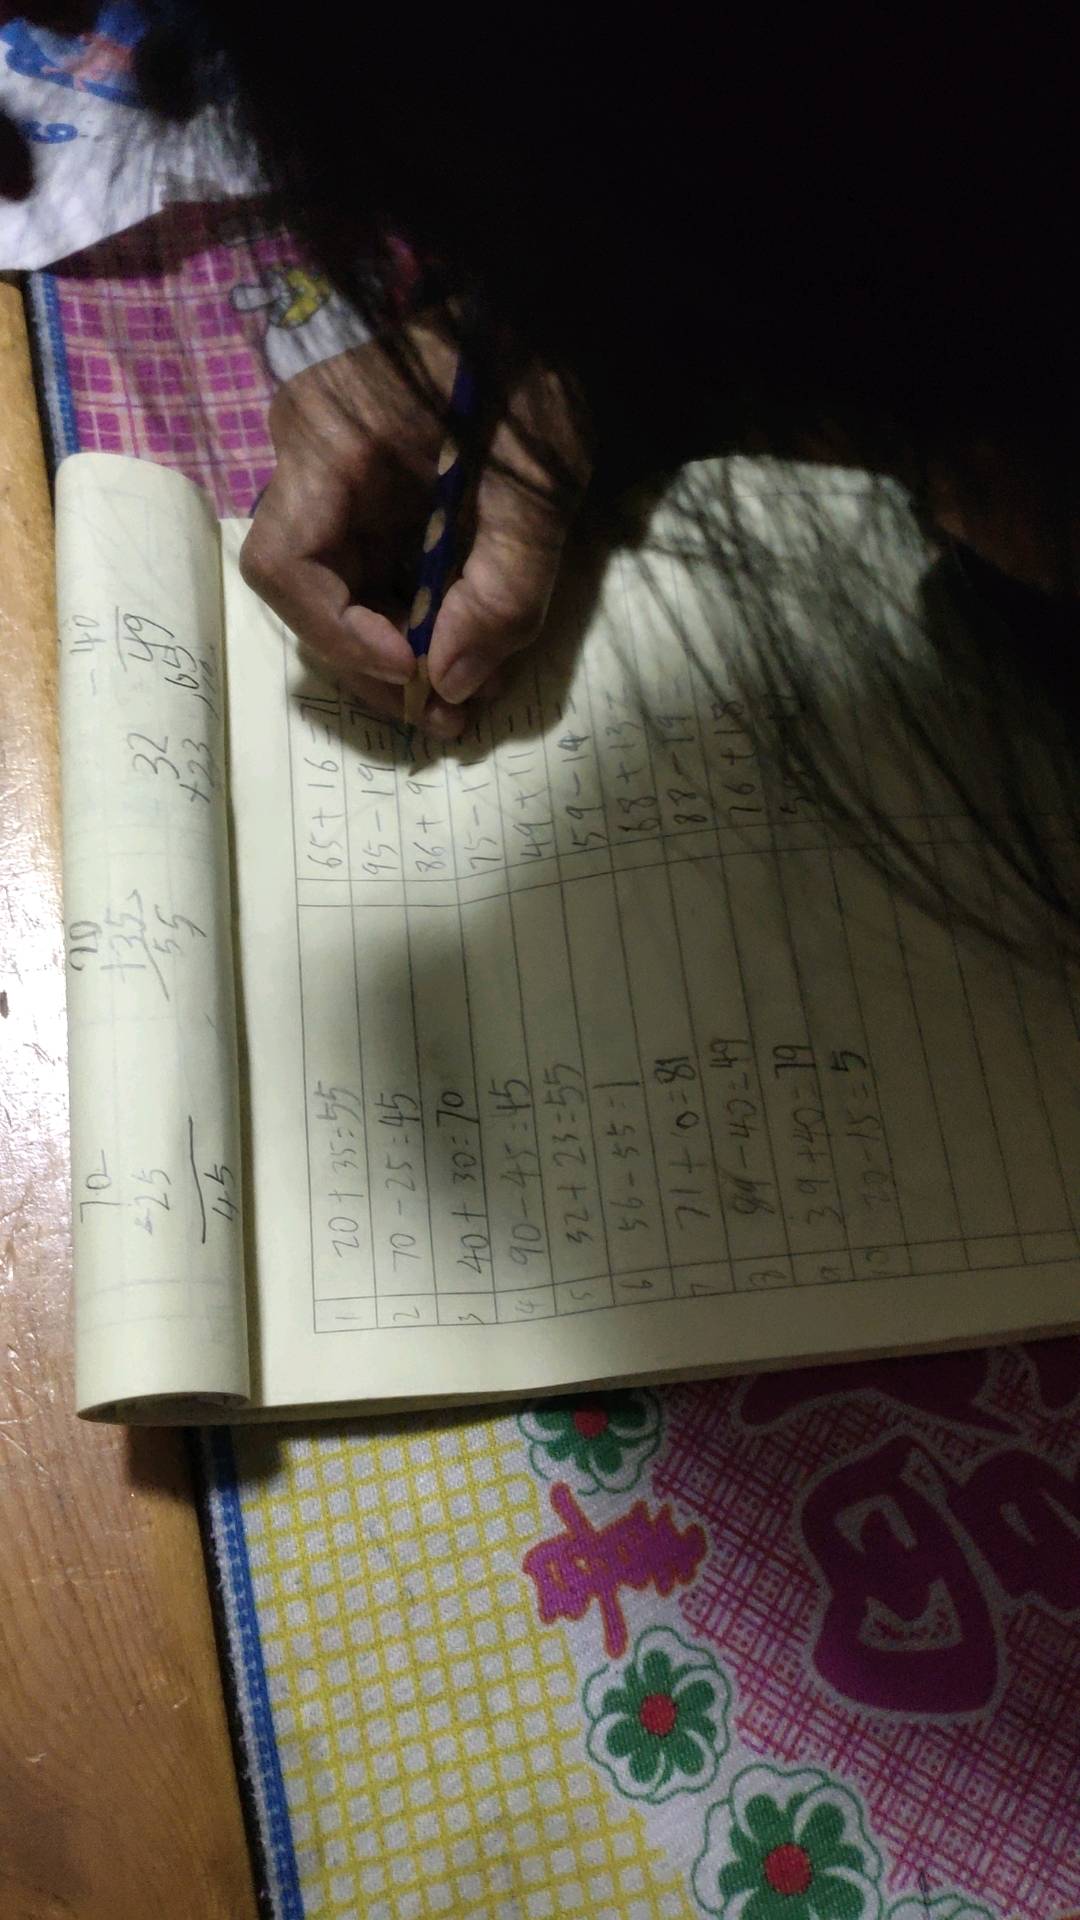 70
-25
45
20
+35
55
32
+23
- 40
49
1 20+35=55
2 70-25=45
3 40+30=70
4 90-45=45
5 32+23=55
6 56-55=1
7 71+10=81
8 89-40=49
9 39+40=79
10 20-15=5
65+16=71
95-19=7
86+9
75-1
49+11=
59-14=
68+13=
88-19=
76+18
喜